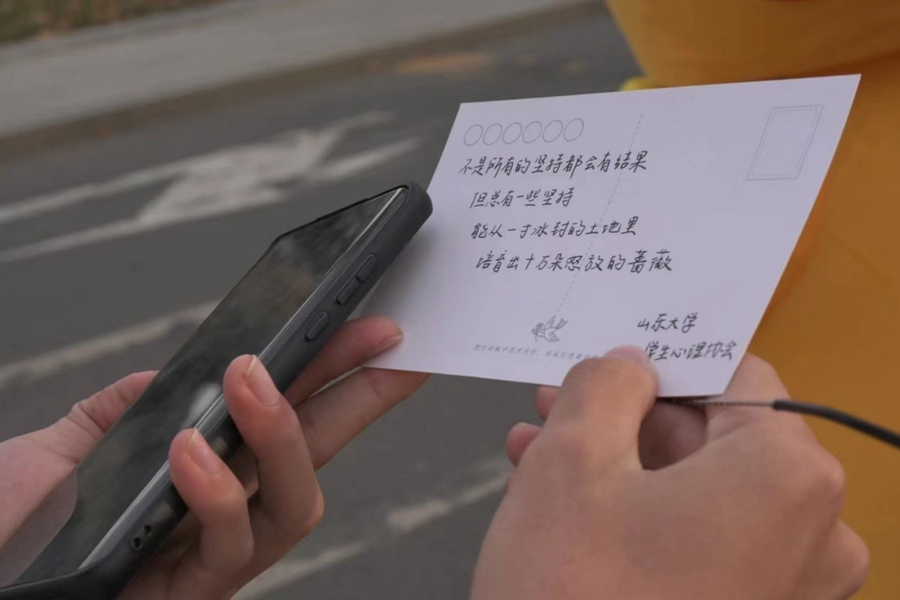 不是所有的坚持都会有结果
但总有一些坚持
能从一寸冰封的土地里
培育出十万朵怒放的蔷薇
山东大学
学生心理协会